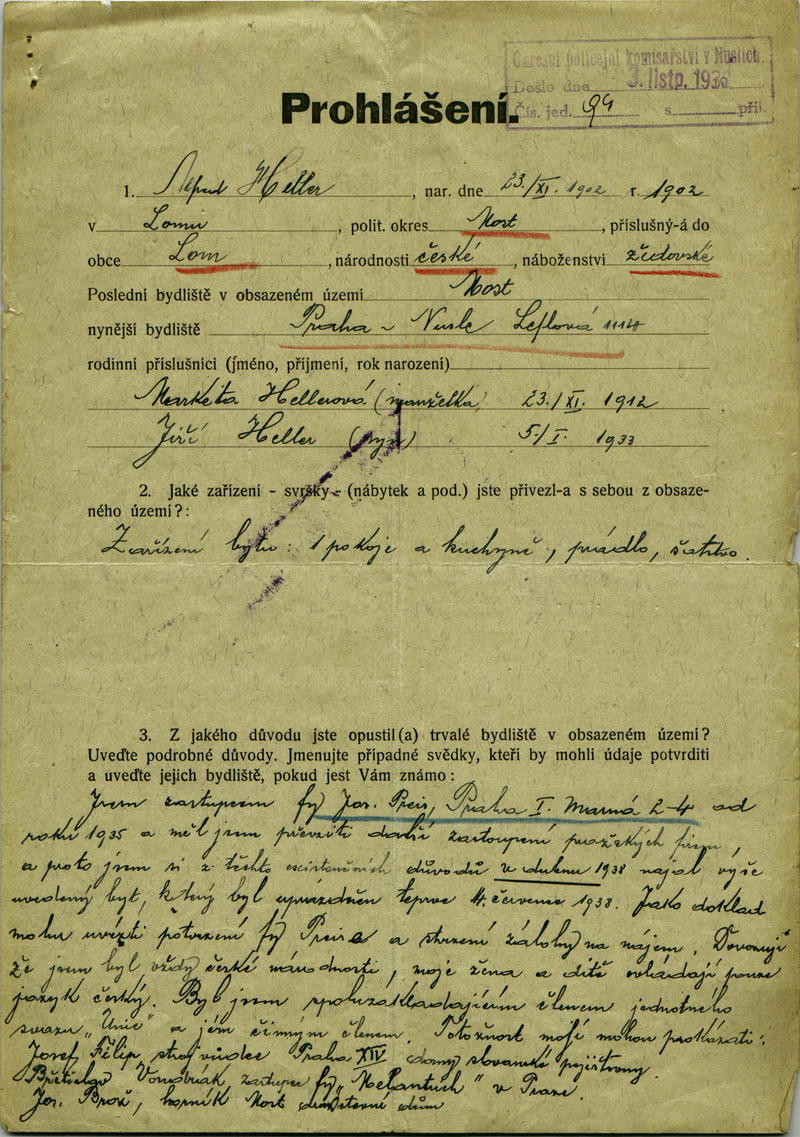 Okresní policejní komisařství v Nuslích
Došlo dne 3. listp. 1938
Čís. jed. 94 s příl.
Prohlášení.
1. Alfred Heller, nar. dne 23./XI. 1902 r. 1902
v Lomu, polit. okres Most, příslušný-á do
obce Lom, národnosti české, náboženství židovské
Poslední bydliště v obsazeném území Most
nynější bydliště Praha - Nusle
rodinní příslušníci (jméno, příjmení, rok narození)
Markéta Hellerová (manželka) 23./XI. 1912
Jiří Heller (syn) 5./I. 1933
2. Jaké zařízení - svršky - (nábytek a pod.) jste přivezl-a s sebou z obsaze-
ného území?:
Zařízení bytu: 1 pokoje a kuchyně, prádlo, šatstvo.
3. Z jakého důvodu jste opustil(a) trvalé bydliště v obsazeném území?
Uveďte podrobné důvody. Jmenujte případné svědky, kteří by mohli údaje potvrditi
a uveďte jejich bydliště, pokud jest Vám známo:
Jsem zástupcem fy Jos. Preis, Praha I. 2-4 od
roku 1935 a měl jsem převzíti další zastoupení pražských firem,
a proto jsem si z těchto existenčních důvodů v dubnu 1938 najal výše
uvedený byt, který byl uprázdněn teprve 4. července 1938. Jako doklad
mohu uvésti potvrzení fy Preis a stvrzení zálohy na nájem. Dovozuji
že jsem byl vždy české národnosti, moje žena a dítě ovládají pouze
jazyk český. Byl jsem spoluzakladajícím členem jednotného
svazu „Unie" a jejím činným členem. Totožnost mojí mohou prokázati:
Josef Filip, strojvůdce Praha XIV domy slovanské pojišťovny
Břetislav zástupce fy „Melantrich" v Praze.
Jos. Brož, horník Most družstevní dům